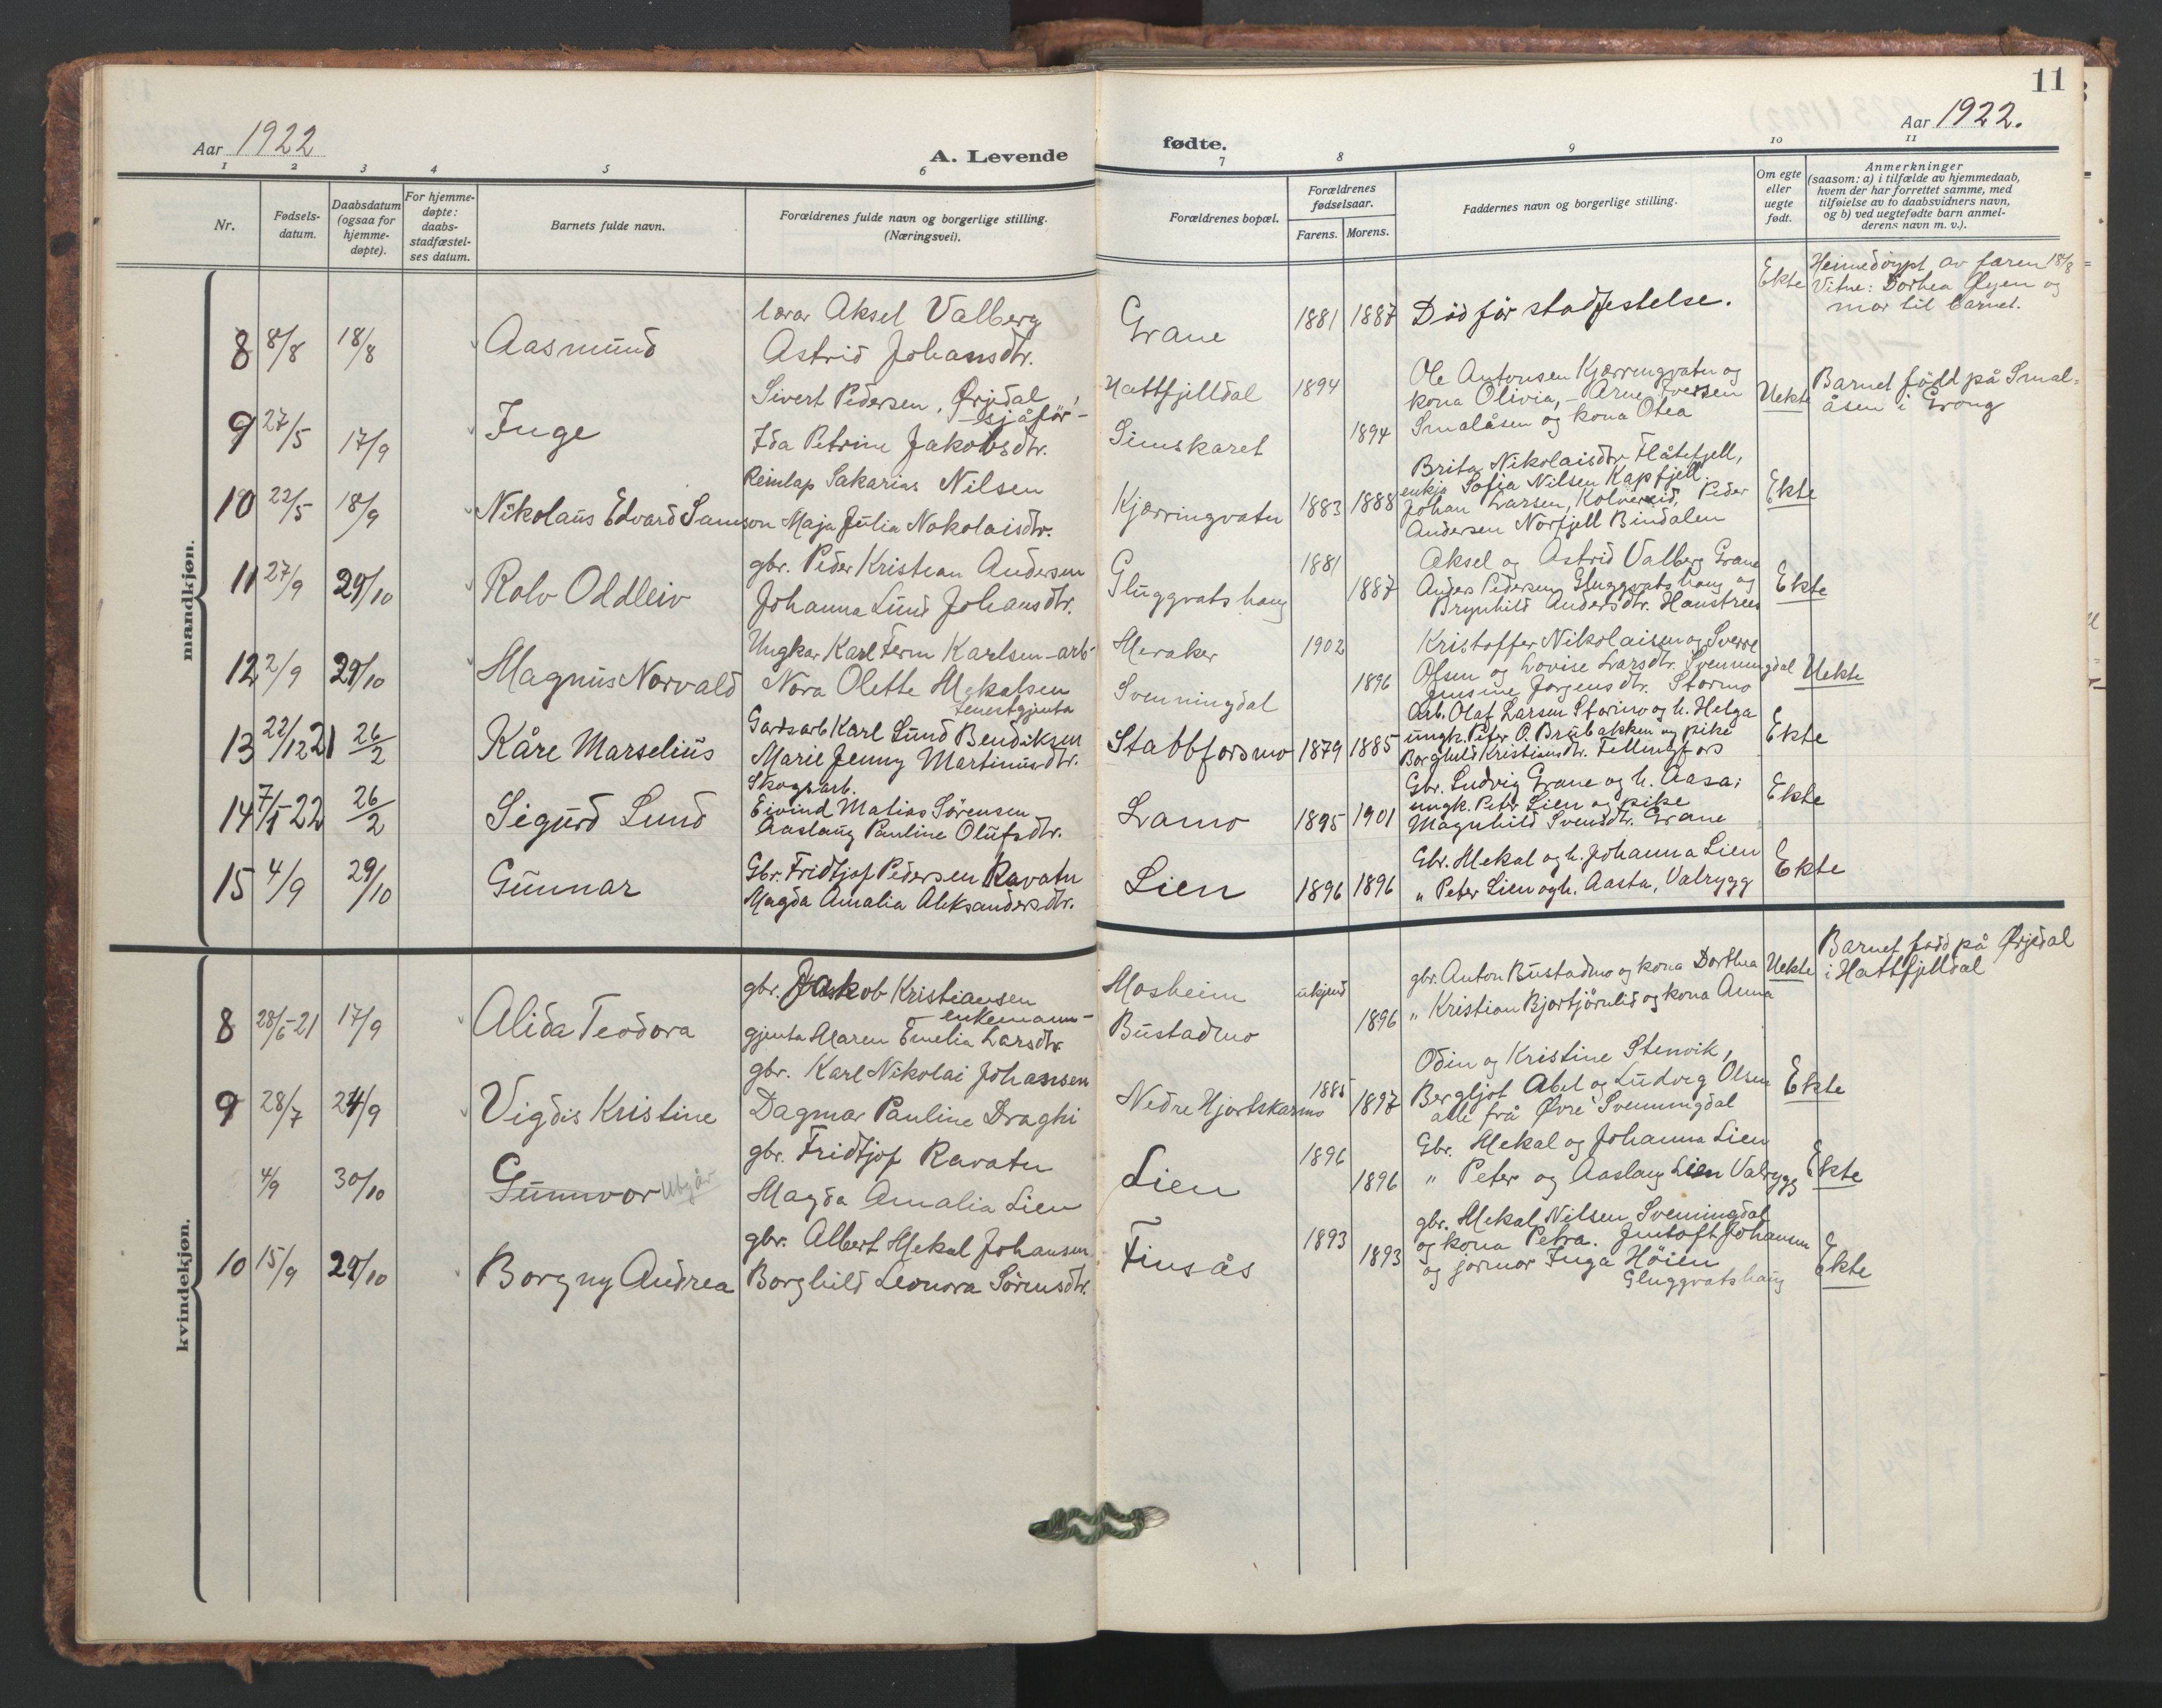 11
Aar 1922
A. Levende
fødte.
Aar 1922.
1 2 3 4 5 6 7 8 9 10 11
Nr.
Fødsels-
datum.
Daabsdatum
(ogsaa for
hjemme-
døpte).
For hjemme-
døpte:
daabs-
stadfæstel-
ses datum.
Barnets fulde navn.
Forældrenes fulde navn og borgerlige stilling.
(Næringsvei).
Forældrenes bopæl.
Forældrenes
fødselsaar.
Farens. Morens.
Faddernes navn og borgerlige stilling.
Om egte
eller
uegte
født.
Anmerkninger
(saasom: a) i tilfælde av hjemmedaab,
hvem der har forrettet samme, med
tilføielse av to daabsvidners navn,
og b) ved uegtefødte barn anmel-
derens navn m. v.).
mandkjøn.
8 8/8 18/8 Aasmund
lærar Aksel Valberg
Astrid Johansdtr.
Grane 1881 1887 Død før stadfestelse. Ekte
Heimedøypt av faren 18/8
Vitne: Dorhea Øyen og
mor til barnet.
9 27/5 17/9 Inge
Sivert Pedersen, Ørjedal,
- sjåfør -
Ida Petrine Jakobsdtr.
Hattfjelldal 1894
Simskaret 1894
Ole Antonsen Kjærringvatn og
kona Olivia, - Arne Iversen
Smalåsen og kona Otea
Uekte
Barnet född på Smal=
åsen i Grong
10 22/5 18/9 Nikolaus Edvard Samson
Reinlap Sakarias Nilsen
Maja Julia Nokolaisdtr.
Kjærringvatn 1883 1888
Brita Nikolaisdtr Flåtefjell,
enkja Sofia Nilsen Kapfjell.
Johan Larsen, Kolvereid, Peder
Andersen Norfjell Bindalen
Ekte
11 27/9 29/10 Rolv Oddleiv
gbr. Peder Kristian Andersen
Johanna Lund Johansdtr.
Gluggvatshaug 1881 1887
Aksel og Astrid Valberg Grane
Anders Pedersen Gluggvatshaug og
Brynhild Andersdtr. Haustreis
Ekte
12 2/9 29/10 Magnus Norvald
Ungkar Karl Ferm Karlsen - arb-
Nora Olette Mekalsen
tenestgjenta
Meraker 1902
Svenningdal 1896
Kristoffer Nikolaisen og Sverre
Olsen og Lovise Larsdtr. Svenningdal
Jensine Jørgensdtr. Stormo
Uekte
13 22/12 21 26/2 Kåre Marselius
Gardsarb Karl Lund Bendiksen
Marie Jenny Martinusdtr.
Stabbforsmo 1879 1885
Arb. Olaf Larsen Storimo og h. Helga
ungk. Peter O. Brubakken og pike
Borghild Kristiansdtr. Fellingfors
Ekte
14 7/1-22 26/2 Sigurd Lund
Skogsarb.
Eivind Matias Sørensen
Aaslaug Pauline Olufsdtr.
Lamo 1895 1901
Gbr. Ludvig Grane og h. Aasa;
ungk. Peter Lien og pike
Magnhild Svensdtr. Grane
Ekte
15 4/9 29/10 Gunnar
Gbr. Fridtjof Pedersen Ravatn
Magda Amalia Aleksandersdtr.
Lien 1896 1896
Gbr. Mekal og h. Johanna Lien
" Peter Lien og h. Aasta, Valrygg
Ekte
kvindekjøn.
8 28/6-21 17/9 Alida Teodora
gbr. Jakob Kristiansen
- enkemann -
gjenta Maren Emelia Larsdtr
Mosheim ukjend
Bustadmo 1896
gbr. Anton Bustadmo og kona Dorthea
" Kristian Bjortjörnlid og kona Anna
Uekte
Barnet fødd på Ørjedal
i Hattfjelldal
9 28/7 24/9 Vigdis Kristine
gbr. Karl Nikolai Johansen
Dagmar Pauline Draghi
Nedre Hjortskarmo 1885 1897
Odin og Kristine Stenvik,
Bergljot Abel og Ludvig Olsen
alle frå Øvre Svenningdal
Ekte
4/9 30/10 Gunnvor Utgår
gbr. Fridtjof Ravatn
Magda Amalia Lien
Lien 1896 1896
Gbr. Mekal og Johanna Lien
" Peter og Aaslaug Lien Valrygg
Ekte
10 15/9 29/10 Borgny Andrea
gbr. Albert Mekal Johansen
Borghild Leonora Sørensdtr.
Finsås 1893 1893
gbr. Mekal Nilsen Svenningdal
og kona Petra. Jentoft Johansen
og jormor Inga Höien
Gluggvatshaug
Ekte